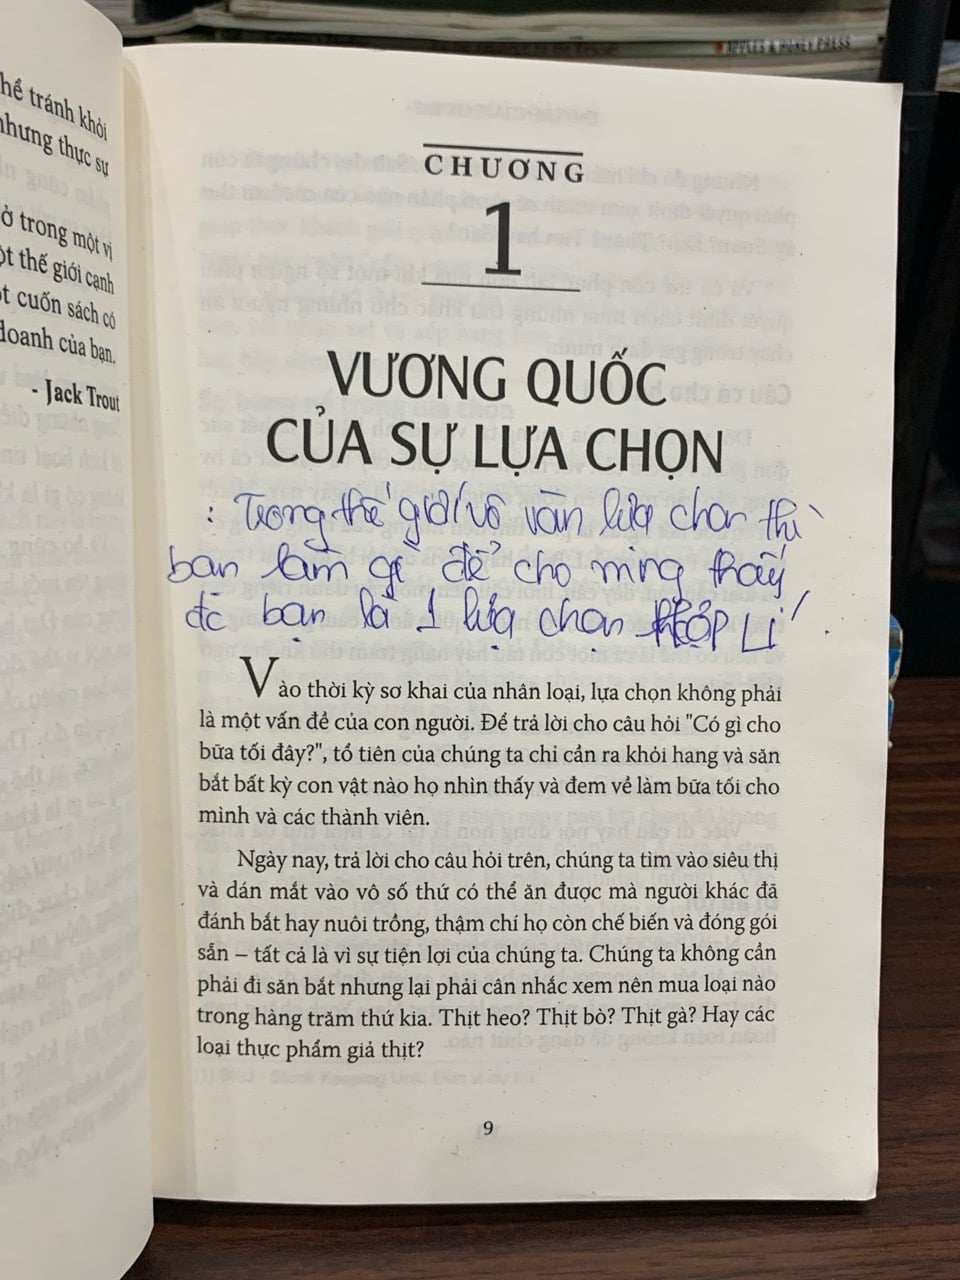 APPLES & HONEY PRESS
hể tránh khỏi
nhưng thực sự
ở trong một vị
ột thế giới cạnh
t cuốn sách có
doanh của bạn.
- Jack Trout
CHƯƠNG
1
VƯƠNG QUỐC
CỦA SỰ LỰA CHỌN
: Trong thế giới vô vàn lựa chọn thì
bạn làm gì để cho mọi người thấy
bạn là 1 lựa chọn HỢP LÍ!
Vào thời kỳ sơ khai của nhân loại, lựa chọn không phải
là một vấn đề của con người. Để trả lời cho câu hỏi "Có gì cho
bữa tối đây?", tổ tiên của chúng ta chỉ cần ra khỏi hang và săn
bắt bất kỳ con vật nào họ nhìn thấy và đem về làm bữa tối cho
mình và các thành viên.
Ngày nay, trả lời cho câu hỏi trên, chúng ta tìm vào siêu thị
và dán mắt vào vô số thứ có thể ăn được mà người khác đã
đánh bắt hay nuôi trồng, thậm chí họ còn chế biến và đóng gói
sẵn – tất cả là vì sự tiện lợi của chúng ta. Chúng ta không cần
phải đi săn bắt nhưng lại phải cân nhắc xem nên mua loại nào
trong hàng trăm thứ kia. Thịt heo? Thịt bò? Thịt gà? Hay các
loại thực phẩm giả thịt?
9